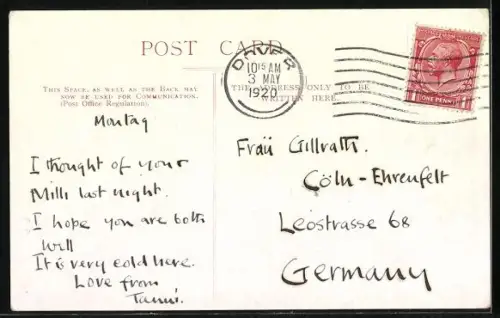 POST CARD
THIS SPACE, AS WELL AS THE BACK MAY
NOW BE USED FOR COMMUNICATION.
(Post Office Regulation).
THE ADDRESS ONLY TO BE
WRITTEN HERE.
DOVER
10 15 AM
3 MAY
1920
ONE PENNY
Montag
I thought of your
Milli last night.
I hope you are both
well
It is very cold here.
Love from
Fraü Gillrath.
Cöln-Ehrenfelt
Leostrasse 68
Germany